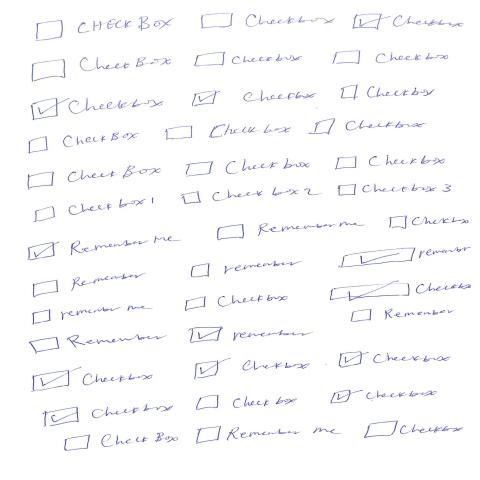 ☐ CHECKBOX ☐ Checkbox ☑ Checkbox
☐ CheckBox ☐ Checkbox ☐ Checkbox
☑ Checkbox ☑ Checkbox ☐ Checkbox
☐ CheckBox ☐ Check box ☐ Checkbox
☐ Check Box ☐ Check box ☐ Checkbox
☐ Checkbox 1 ☐ Check box 2 ☐ Checkbox 3
☑ Remember Me ☐ Remember me ☐ Checkbox
☐ Remember ☐ remember ☑ remember
☐ remember me ☐ Checkbox ☑ Checkbox
☐ Remember ☑ remember ☐ Remember
☑ Checkbox ☑ Checkbox ☑ Checkbox
☑ Checkbox ☐ Check box ☑ Checkbox
☐ Check Box ☐ Remember me ☐ Checkbox